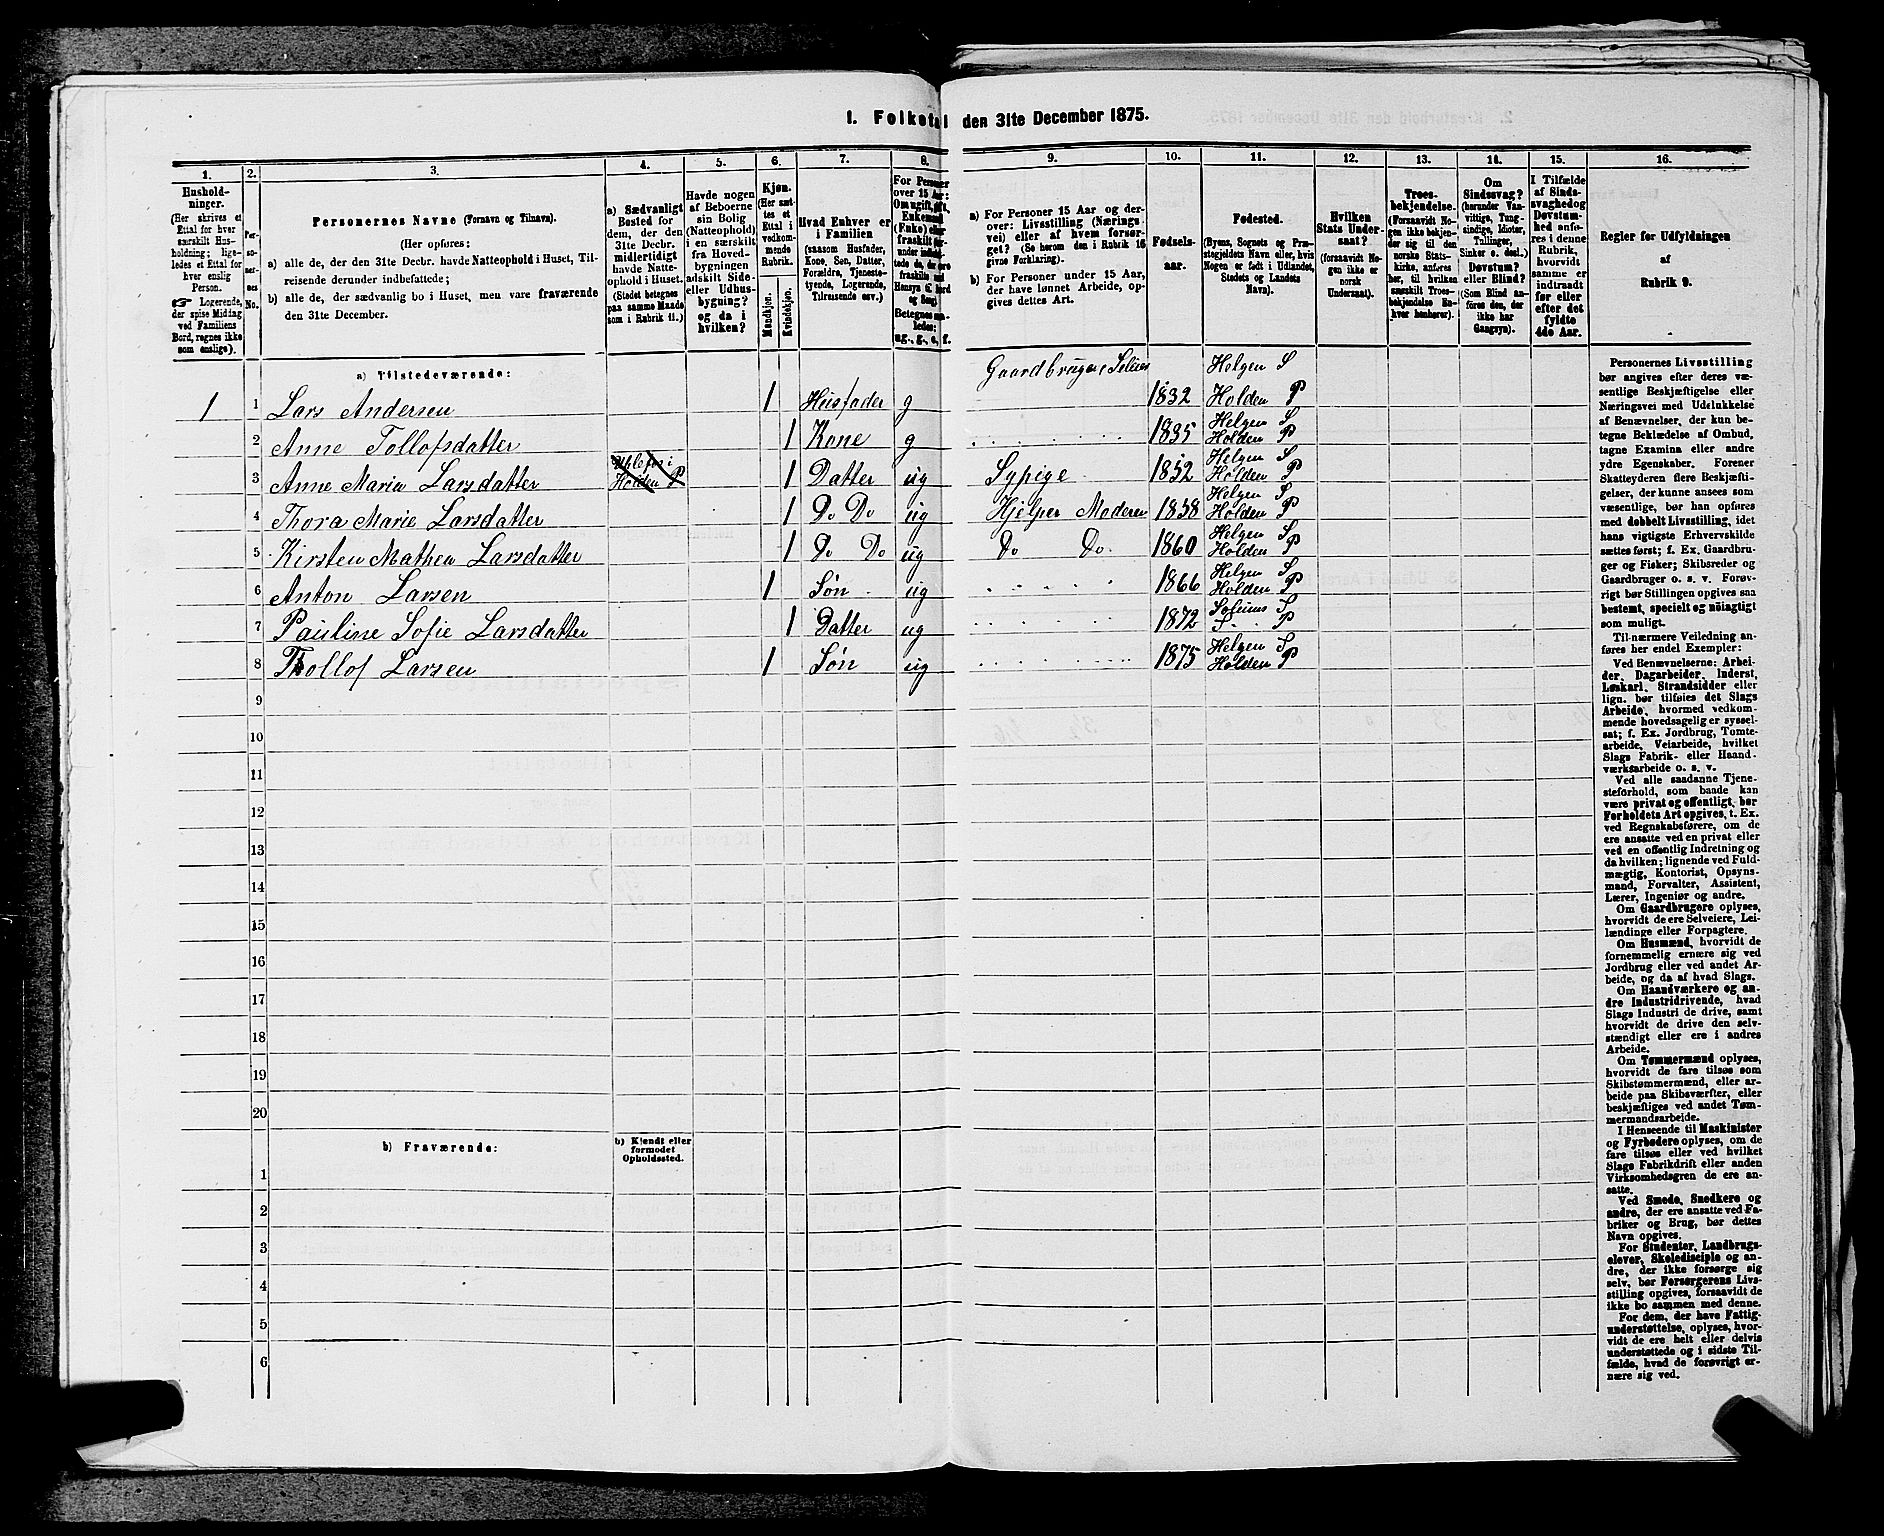 1. Folketal den 31te December 1875.
1. 2. 3. 4. 5. 6. 7. 8. 9. 10. 11. 12. 13. 14. 15. 16.
Hushold-
ninger.
(Her skrives et
Ettal for hver
særskilt Hus-
holdning; lige-
ledes et Ettal for
hver enslig
Person.
☞ Logerende,
der spise Middag
ved Familiens
Bord, regnes ikke
som enslige).
Per-
so-
ner-
nes
No.
Personernes Navne (Fornavn og Tilnavn).
(Her opføres:
a) alle de, der den 31te Decbr. havde Natteophold i Huset, Til-
reisende derunder indbefattede;
b) alle de, der sædvanlig bo i Huset, men vare fraværende
den 31te December.
a) Sædvanligt
Bosted for
dem, der den
31te Decbr.
midlertidigt
havde Natte-
ophold i Huset.
(Stedet betegnes
paa samme Maade
som i Rubrik 11.)
Havde nogen
af Beboerne
sin Bolig
(Natteophold)
i en særskilt
fra Hoved-
bygningen
adskilt Side-
eller Udhus-
bygning?
og da i
hvilken?
Kjøn.
(Her sæt-
tes et
Ettal i
vedkom-
mende
Rubrik.
Mandkjøn.
Kvindekjøn.
Hvad Enhver er
i Familien
(saasom Husfader,
Kone, Søn, Datter,
Forældre, Tjeneste-
tyende, Logerende,
Tilreisende osv.)
For Personer
over 15 Aar:
Om ugift, gift,
Enkemand
(Enke) eller
fraskilt
Betegnes saa-
ledes:
ug., g., e., f.
a) For Personer 15 Aar og der-
over: Livsstilling (Nærings-
vei) eller af hvem forsør-
get? (Se herom den i Rubrik 16
givne Forklaring).
b) For Personer under 15 Aar,
der have lønnet Arbeide, op-
gives dettes Art.
Fødsels-
aar.
Fødested.
(Byens, Sognets og Præ-
stegjeldets Navn eller, hvis
Nogen er født i Udlandet,
Stedets og Landets
Navn).
Hvilken
Stats Under-
saat?
(forsaavidt No-
gen ikke er
norsk
Undersaat).
Troes-
bekjendelse.
(Forsaavidt No-
gen ikke bekjen-
der sig til den
norske Stats-
kirke, anføres
her, til hvilken
særskilt Troes-
bekjendelse En-
hver henhører).
Om
Sindssvag?
(herunder Van-
vittige, Tung-
sindige, Idioter,
Tullinger,
Sinker o. desl.)
Døvstum?
eller Blind?
(Som Blind an-
føres den, der
ikke har
Gangsyn).
I Tilfælde
af Sinds-
svaghed og
Døvstum-
hed anfø-
res i denne
Rubrik,
hvorvidt
samme er
indtraadt
før eller
efter det
fyldte
4de Aar.
Regler for Udfyldningen
af
Rubrik 9.
a) Tilstedeværende:
1 1 Lars Andersen 1 Husfader g Gaardbruger, Seleier 1832 Helgen S Holden P
2 Anne Tollofsdatter 1 Kone g 1835 Helgen S Holden P
3 Anne Maria Larsdatter Holden P 1 Datter ug Sypige 1852 Helgen S Holden P
4 Thora Marie Larsdatter 1 Do Do ug Hjelper Moderen 1858 Helgen S Holden P
5 Kirsten Mathea Larsdatter 1 Do Do ug Do Do 1860 Helgen S Holden P
6 Anton Larsen 1 Søn ug 1866 Helgen S Holden P
7 Pauline Sofie Larsdatter 1 Datter ug 1872 S S P
8 Thollof Larsen 1 Søn ug 1875 Helgen S Holden P
9
10
11
12
13
14
15
16
17
18
19
20
b) Fraværende: b) Kjendt eller
formodet
Opholdssted.
1
2
3
4
5
6
Personernes Livsstilling
bør angives efter deres væ-
sentlige Beskjæftigelse eller
Næringsvei med Udelukkelse
af Benævnelser, der kun be-
tegne Beklædelse af Ombud,
tagne Examina eller andre
ydre Egenskaber. Forener
Skatteyderen flere Beskjæfti-
gelser, der kunne ansees som
væsentlige, bør han opføres
med dobbelt Livsstilling, idet
hans vigtigste Erhvervskilde
sættes først; f. Ex. Gaardbru-
ger og Fisker; Skibsreder og
Gaardbruger o. s. v. Forøv-
rigt bør Stillingen opgives saa
bestemt, specielt og nöiagtigt
som muligt.
Til nærmere Veiledning an-
føres her endel Exempler:
Ved Benævnelserne: Arbei-
der, Dagarbeider, Inderst,
Løskarl, Strandsidder eller
lign. bør tilføies det Slags
Arbeide, hvormed vedkom-
mende hovedsagelig er syssel-
sat; f. Ex. Jordbrug, Tomte-
arbeide, Veiarbeide, hvilket
Slags Fabrik- eller Haand-
værksarbeide o. s. v.
Ved alle saadanne Tjene-
steforhold, som baade kan
være privat og offentligt, bør
Forholdets Art opgives, t. Ex.
ved Regnskabsførere, om de
ere ansatte ved en privat eller
ved en offentlig Indretning og
da hvilken; lignende ved Fuld-
mægtig, Kontorist, Opsyns-
mand, Forvalter, Assistent,
Lærer, Ingeniør og andre.
Om Gaardbrugere oplyses,
hvorvidt de ere Selveiere, Lei-
lændinge eller Forpagtere.
Om Husmænd, hvorvidt de
fornemmelig ernære sig ved
Jordbrug eller ved andet Ar-
beide, og da af hvad Slags.
Om Haandværkere og an-
dre Industridrivende, hvad
Slags Industri de drive, samt
hvorvidt de drive den selv-
stændigt eller ere i andres
Arbeide.
Om Tømmermænd oplyses,
hvorvidt de fare tilsøs som
Skibstømmermænd, eller ar-
beide paa Skibsværfter, eller
beskjæftiges ved andet Tøm-
mermandsarbeide.
I Henseende til Maskinister
og Fyrbødere oplyses, om de
fare tilsøs eller ved hvilket
Slags Fabrikdrift eller anden
Virksomhedsgren de ere an-
satte.
Ved Smede, Snedkere og
andre, der ere ansatte ved Fa-
briker og Brug, bør dettes
Navn opgives.
For Studenter, Landbrugs-
elever, Skoledisciple og an-
dre, der ikke forsørge sig
selv, bør Forsørgerens Livs-
stilling opgives, forsaavidt de
ikke bo sammen med denne.
For dem, der have Fattig-
understøttelse, oplyses, hvor-
vidt de ere helt eller delvis
understøttede og i sidste Til-
fælde, hvad de forøvrigt er-
nære sig ved.